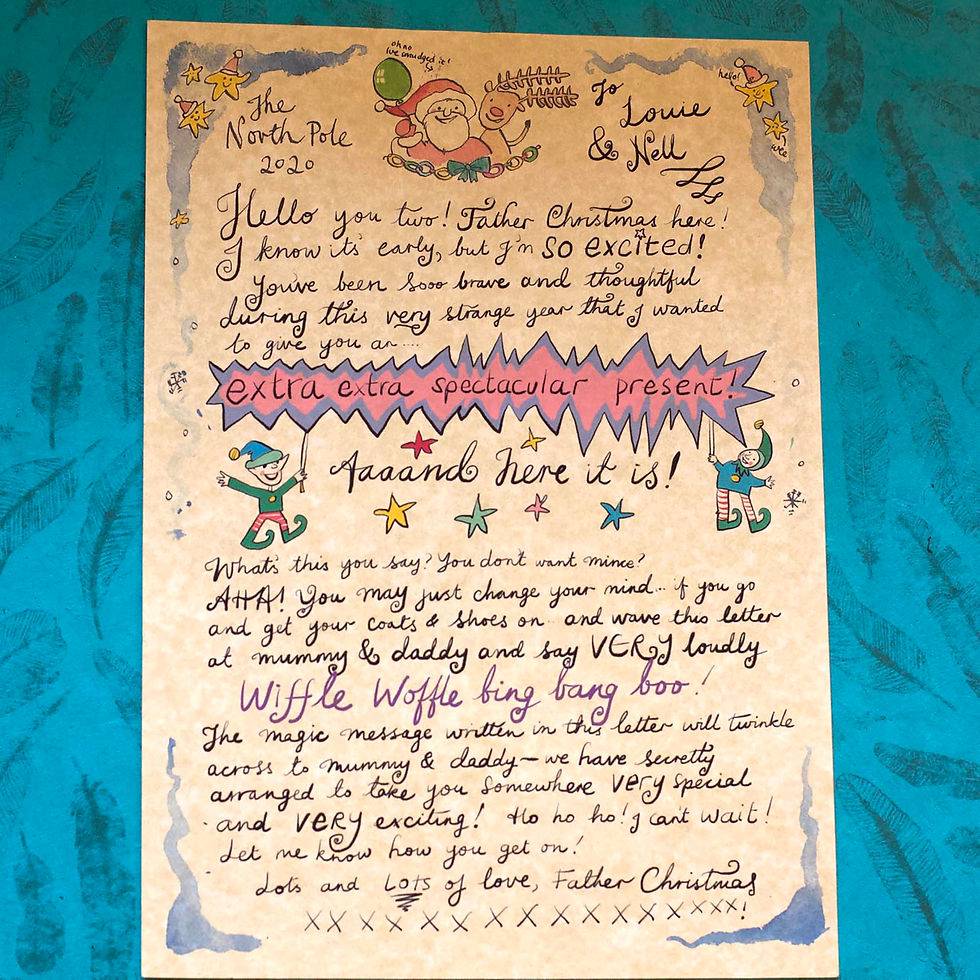 oh no
I've smudged it!
The
North Pole
2020
To
Louie
& Nell
hello!
wee
Hello you two! Father Christmas here!
I know its' early, but I'm so excited!
You've been Sooo brave and thoughtful
during this very strange year that I wanted
to give you an....
extra extra spectacular present!
Aaaand here it is!
What's this you say? You don't want mince?
AHA! You may just change your mind... if you go
and get your coats & shoes on.. and wave this letter
at mummy & daddy and say VERY loudly
Wiffle Woffle bing bang boo!
The magic message written in this letter will twinkle
across to mummy & daddy – we have secretly
arranged to take you somewhere very special
and VERY exciting! Ho ho ho! I can't wait!
Let me know how you get on!
Lots and LOTS of love, Father Christmas
XXXXXXXXXXXXXXXX!